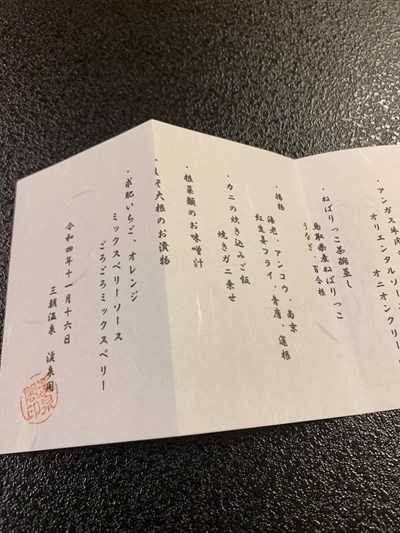 アンガス牛肉の
オリエンタルソー
オニオンクリー
・ねばりっこ茶碗蒸し
鳥取県産ねばりっこ
うなぎ、百合根
・揚物
海老・アンコウ・南京
紅ずわいフライ・青唐
・カニの炊き込みご飯
焼きガニ乗せ
・根菜類のお味噌汁
・しそ大根のお漬物
・求肥いちご、オレンジ
ミックスベリーソース
ごろごろミックスベリー
令和四年十一月十六日
三朝温泉 渓泉閣